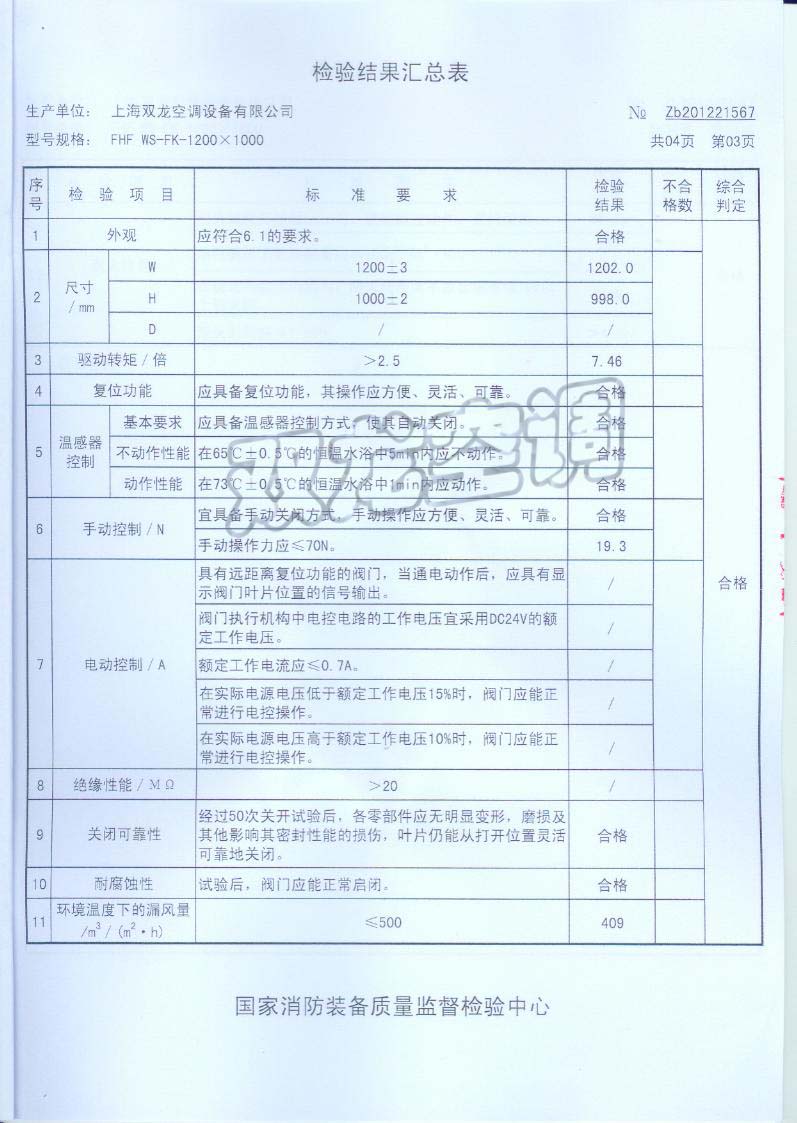 检验结果汇总表
生产单位： 上海双龙空调设备有限公司 № Zb201221567
型号规格： FHF WS-FK-1200×1000 共04页 第03页
序号 检 验 项 目 标 准 要 求 检验结果 不合格数 综合判定
1 外观 应符合6.1的要求。 合格
2 尺寸/mm W 1200±3 1202.0
H 1000±2 998.0
D / /
3 驱动转矩/倍 >2.5 7.46
4 复位功能 应具备复位功能，其操作应方便、灵活、可靠。 合格
5 温感器控制 基本要求 应具备温感器控制方式，使其自动关闭。 合格
不动作性能 在65℃±0.5℃的恒温水浴中5min内应不动作。 合格
动作性能 在73℃±0.5℃的恒温水浴中1min内应动作。 合格
双龙空调
6 手动控制/N 宜具备手动关闭方式，手动操作应方便、灵活、可靠。 合格
手动操作力应≤70N。 19.3
合格
7 电动控制/A 具有远距离复位功能的阀门，当通电动作后，应具有显
示阀门叶片位置的信号输出。 /
阀门执行机构中电控电路的工作电压宜采用DC24V的额
定工作电压。 /
额定工作电流应≤0.7A。 /
在实际电源电压低于额定工作电压15%时，阀门应能正
常进行电控操作。 /
在实际电源电压高于额定工作电压10%时，阀门应能正
常进行电控操作。 /
8 绝缘性能/MΩ >20 /
9 关闭可靠性 经过50次关开试验后，各零部件应无明显变形，磨损及
其他影响其密封性能的损伤，叶片仍能从打开位置灵活
可靠地关闭。 合格
10 耐腐蚀性 试验后，阀门应能正常启闭。 合格
11 环境温度下的漏风量
/m³/(m²·h) ≤500 409
国家消防装备质量监督检验中心